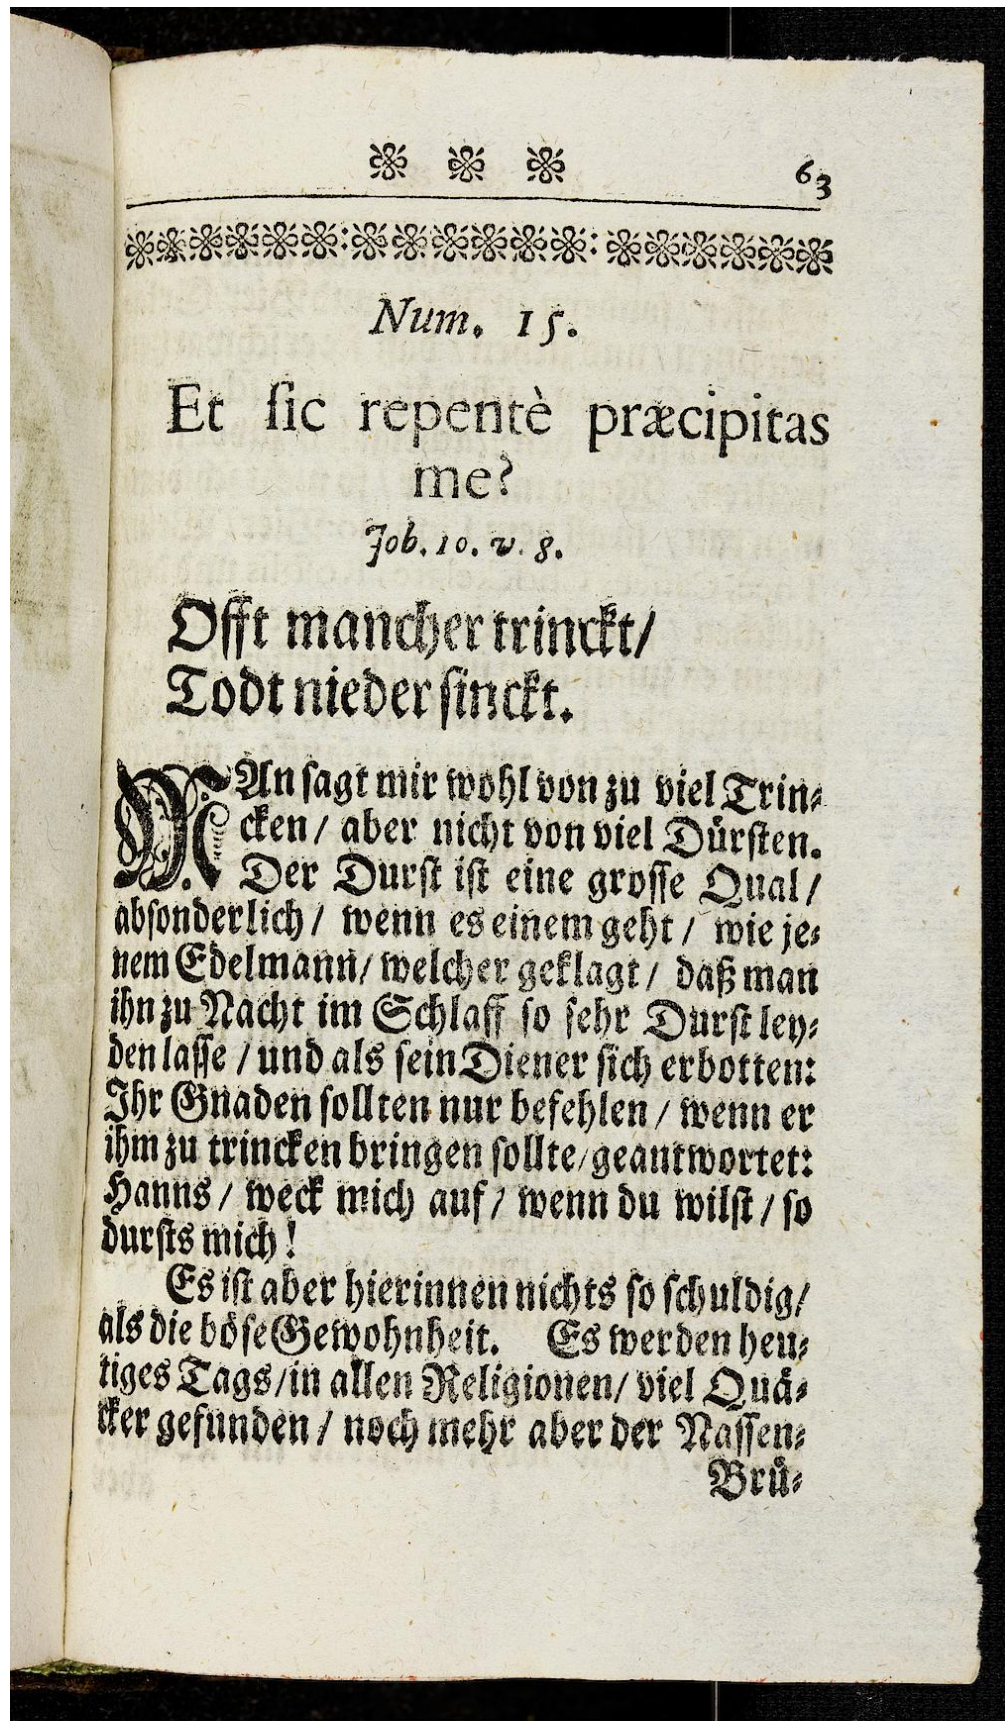 63
Num. 15.
Et ſic repentè præcipitas
me?
Job. 10. v. 8.
Offt mancher trinckt/
Todt nieder ſinckt.
MAn ſagt mir wohl von zu viel Trin⸗
cken/ aber nicht von viel Dürſten.
Der Durſt iſt eine groſſe Qual/
abſonderlich/ wenn es einem geht/ wie je⸗
nem Edelmann/ welcher geklagt/ daß man
ihn zu Nacht im Schlaff ſo ſehr Durſt ley⸗
den laſſe/ und als ſein Diener ſich erbotten:
Ihr Gnaden ſollten nur befehlen/ wenn er
ihm zu trincken bringen ſollte/ geantwortet:
Hanns/ weck mich auf/ wenn du wilſt/ ſo
durſts mich!
Es iſt aber hierinnen nichts ſo ſchuldig/
als die böſe Gewohnheit. Es werden heu⸗
tiges Tags/ in allen Religionen/ viel Quä⸗
cker gefunden/ noch mehr aber der Naſſen⸗
Brü⸗